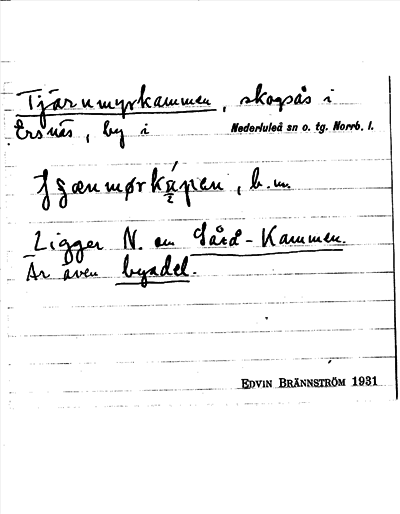 Tjärnmyrkammen, skogsås i
Ersnäs, by i Nederluleå sn o. tg. Norrb. l.
b. m.
Ligger N. om Gård-Kammen.
Är även byadel.
EDVIN BRÄNNSTRÖM 1931